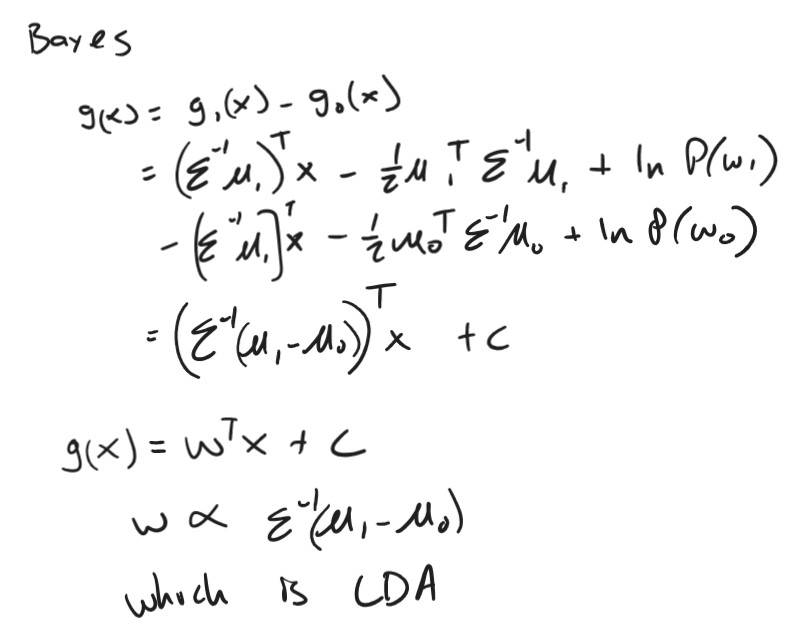 Bayes
g(x) = g₁(x) - g₀(x)
= (Σ⁻¹μ₁)ᵀx - ½μ₁ᵀ Σ⁻¹μ₁ + ln P(ω₁)
- (Σ⁻¹μ₁]ᵀx - ½μ₀ᵀ Σ⁻¹μ₀ + ln P(ω₀)
= (Σ⁻¹(μ₁-μ₀))ᵀx + c
g(x) = wᵀx + c
w ∝ Σ⁻¹(μ₁-μ₀)
which is LDA